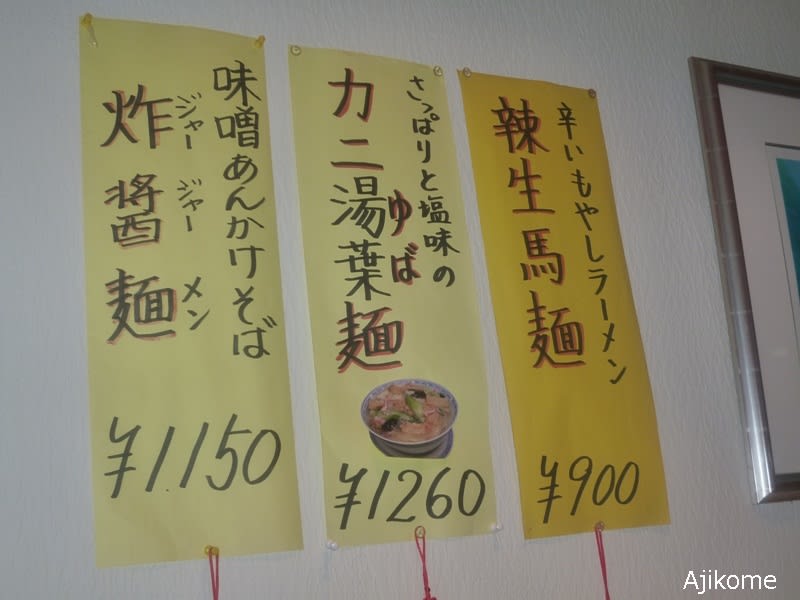 辛いもやしラーメン
辣生馬麺
¥900
さっぱりと塩味の
カニ湯葉麺
ゆば
¥1260
味噌あんかけそば
炸醤麺
ジャージャーメン
¥1,150
Ajikome